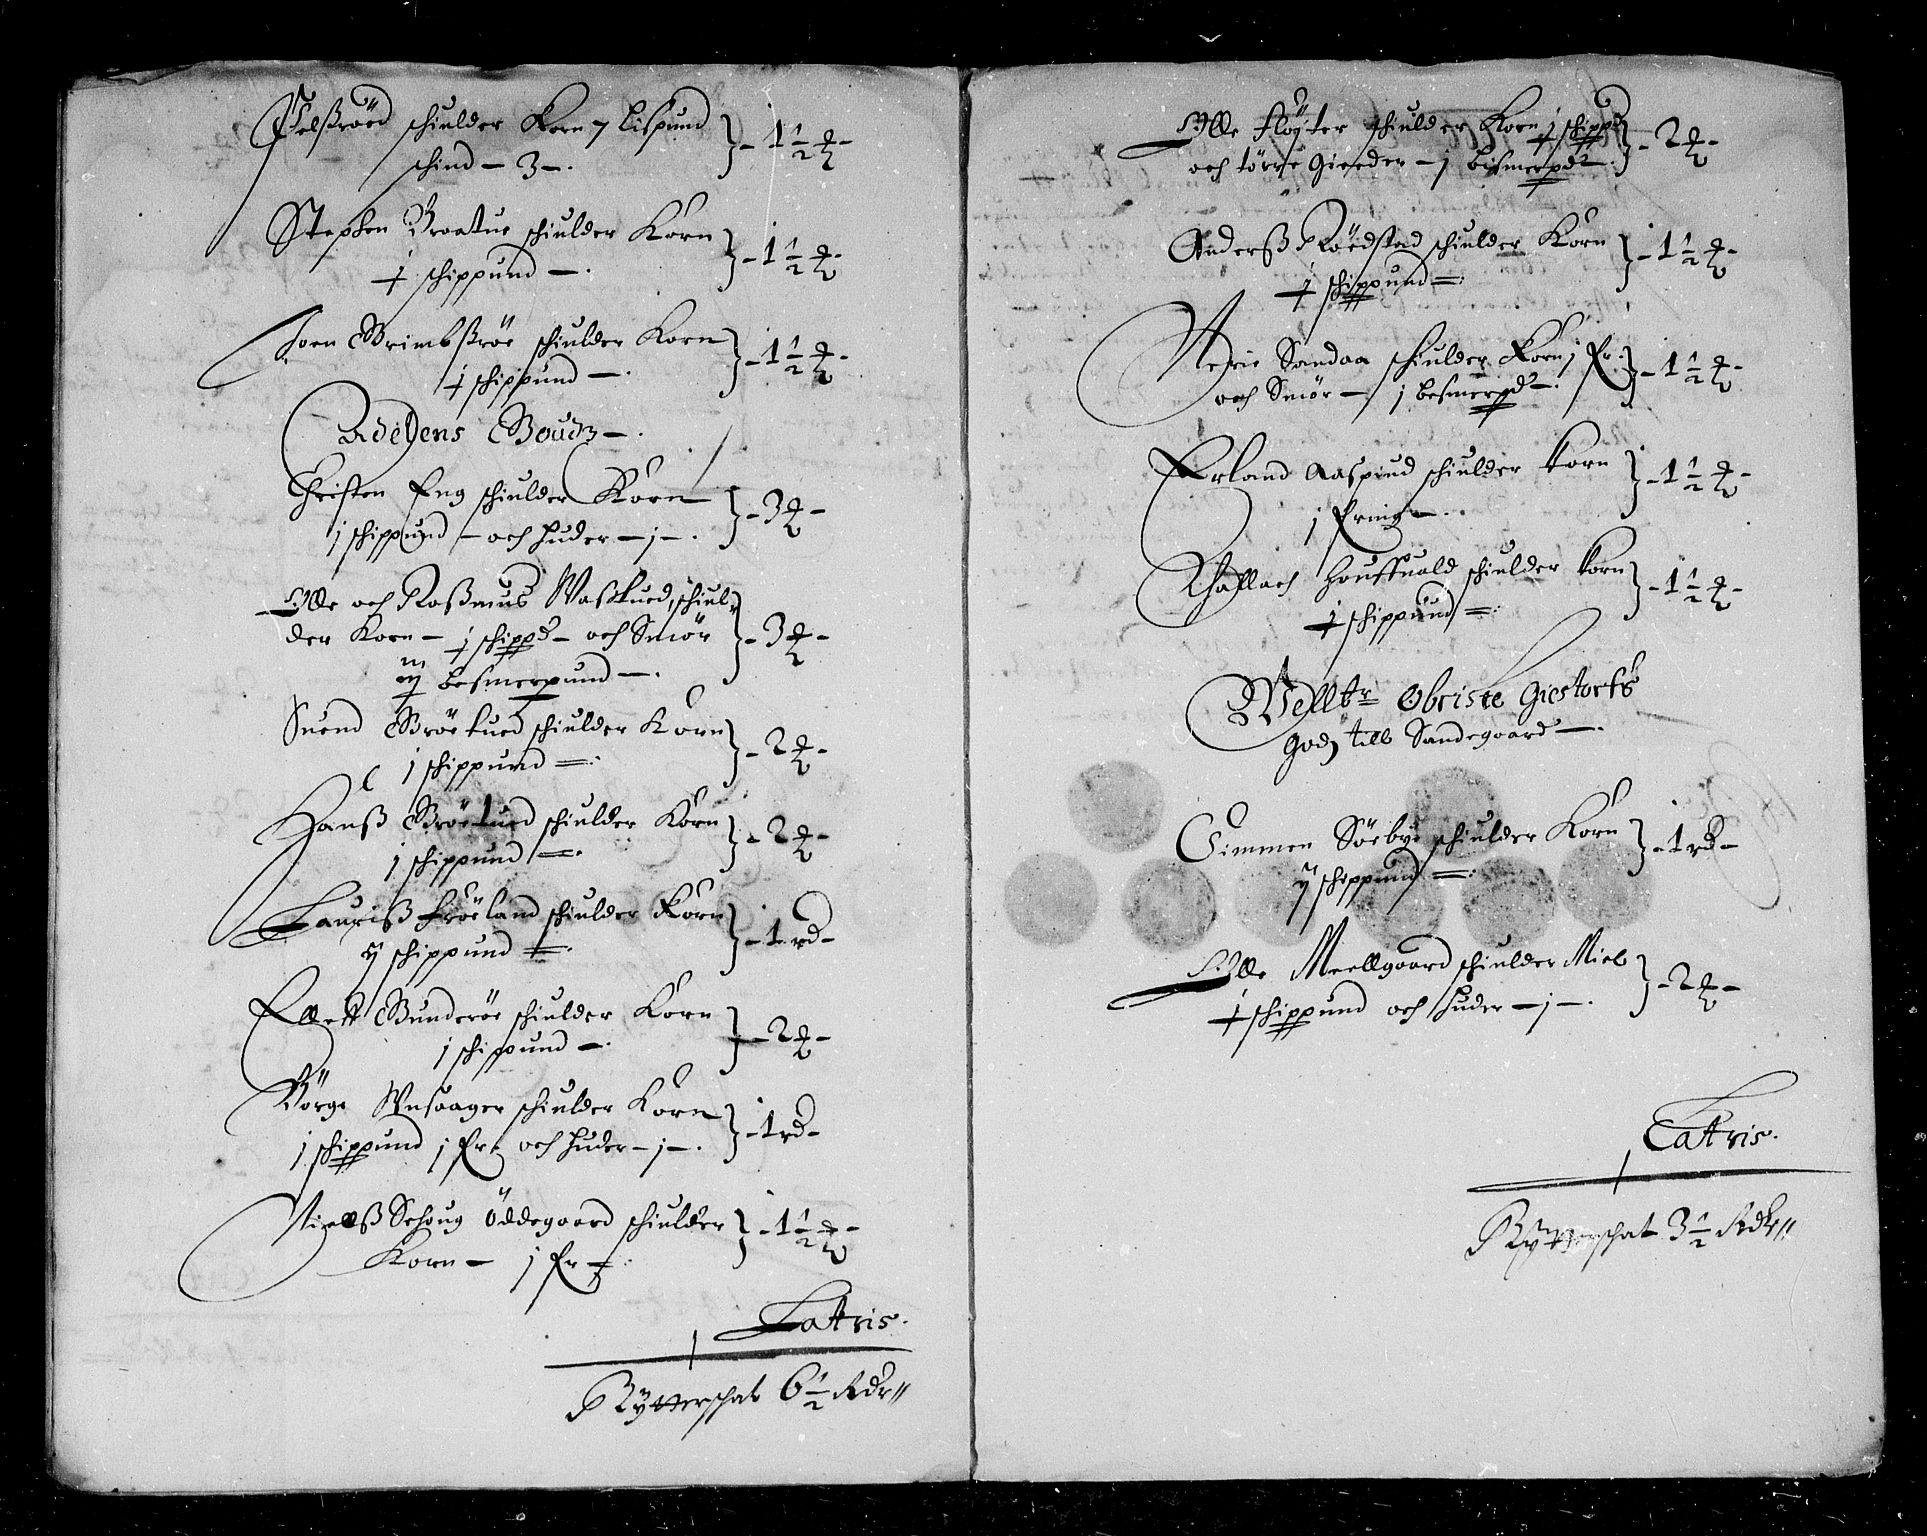 Pelßröed schiulder Korn 7 Lispund
schind – 3 –. } – 1 1/2 ort –
Stephen Braatue schiulder Korn
1 schippund –. } – 1 1/2 ort –
Joen Grimbßröe schiulder Korn
1 schippund –. } – 1 1/2 ort –
Adelens Goudz –.
Christen Eng schiulder Korn
1 schippund – och huder – j –. } – 3 ort –
Olle och Raßmus Waßtued, schiul-
der Korn – 1 schippd – och Smör
iij besmerpund –. } – 3 ort –
Suend Bröetued schiulder Korn
1 schippund =. } – 2 ort –
Hanß Bröetued schiulder Korn
1 schippund =. } – 2 ort –
Lauriß Fröeland schiulder Korn
ij schippund =. } – 1 rd –
Ellett Gunderöe schiulder Korn
1 schippund –. } – 2 ort –
Börge schiulder Korn
1 schippund j fr: och huder – j –. } – 1 rd –
Nielß Schoug Öddegaard schiulder
Korn – j fr –. } – 1 1/2 ort –
Lattris.
Rytterschat 6 1/2 Rdr
Olle Flöyter schiulder Korn 1 schippd
och törre Gieeder – j bismerpd –. } – 2 ort –
Anderß Röedstad schiulder Korn
1 schippund =. } – 1 1/2 ort –
Sandaa schiulder Korn j fr:
och Smör – j besmerpd –. } – 1 1/2 ort –
Erland Aaspiud schiulder Korn
j fring –. } – 1 1/2 ort –
Thallach Houffuald schiulder Korn
1 schippund =. } – 1 1/2 ort –
Wellbr Obriste Giestorfs
Godz till Sandegaard –.
Simmen Söebye schiulder Korn
ij schippund =. } – 1 rd –
Olle Meellgaard schiulder Miel
1 schippund och huder – j –. } – 2 ort –
Lattris.
Rytterschat 3 1/2 Rdr